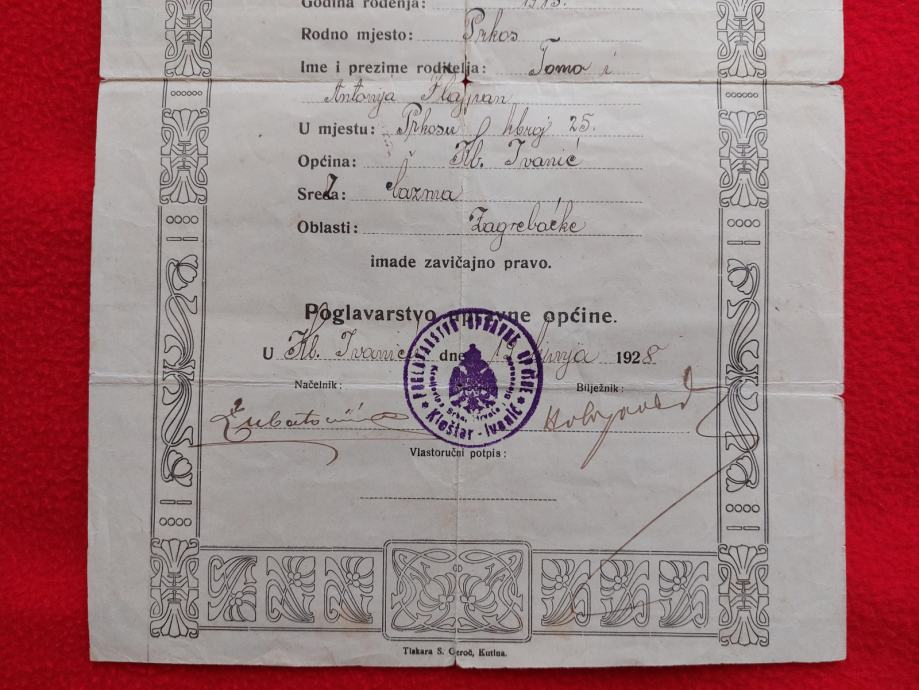 Godina rođenja: 1913.
Rodno mjesto: Prkos
Ime i prezime roditelja: Tomo i
Antonija
U mjestu: Prkosu kbroj 25.
Općina: Kl. Ivanić
Sreza: Čazma
Oblasti: Zagrebačke
imade zavičajno pravo.
Poglavarstvo upravne općine.
U Kl. Ivaniću dne lipnja 1928
Načelnik: Bilježnik:
POGLAVARSTVO UPRAVNE OPĆINE
Kraljevina Srba, Hrvata i Slovenaca
Kloštar - Ivanić
Vlastoručni potpis:
GD
Tiskara S. Geroč, Kutina.